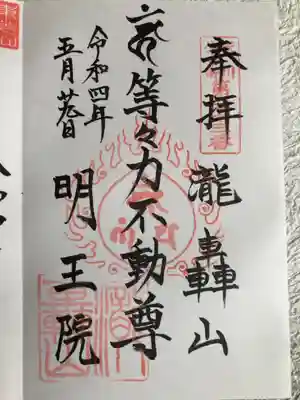 奉拝
瀧轟山
等々力不動尊
明王院
令和四年
五月